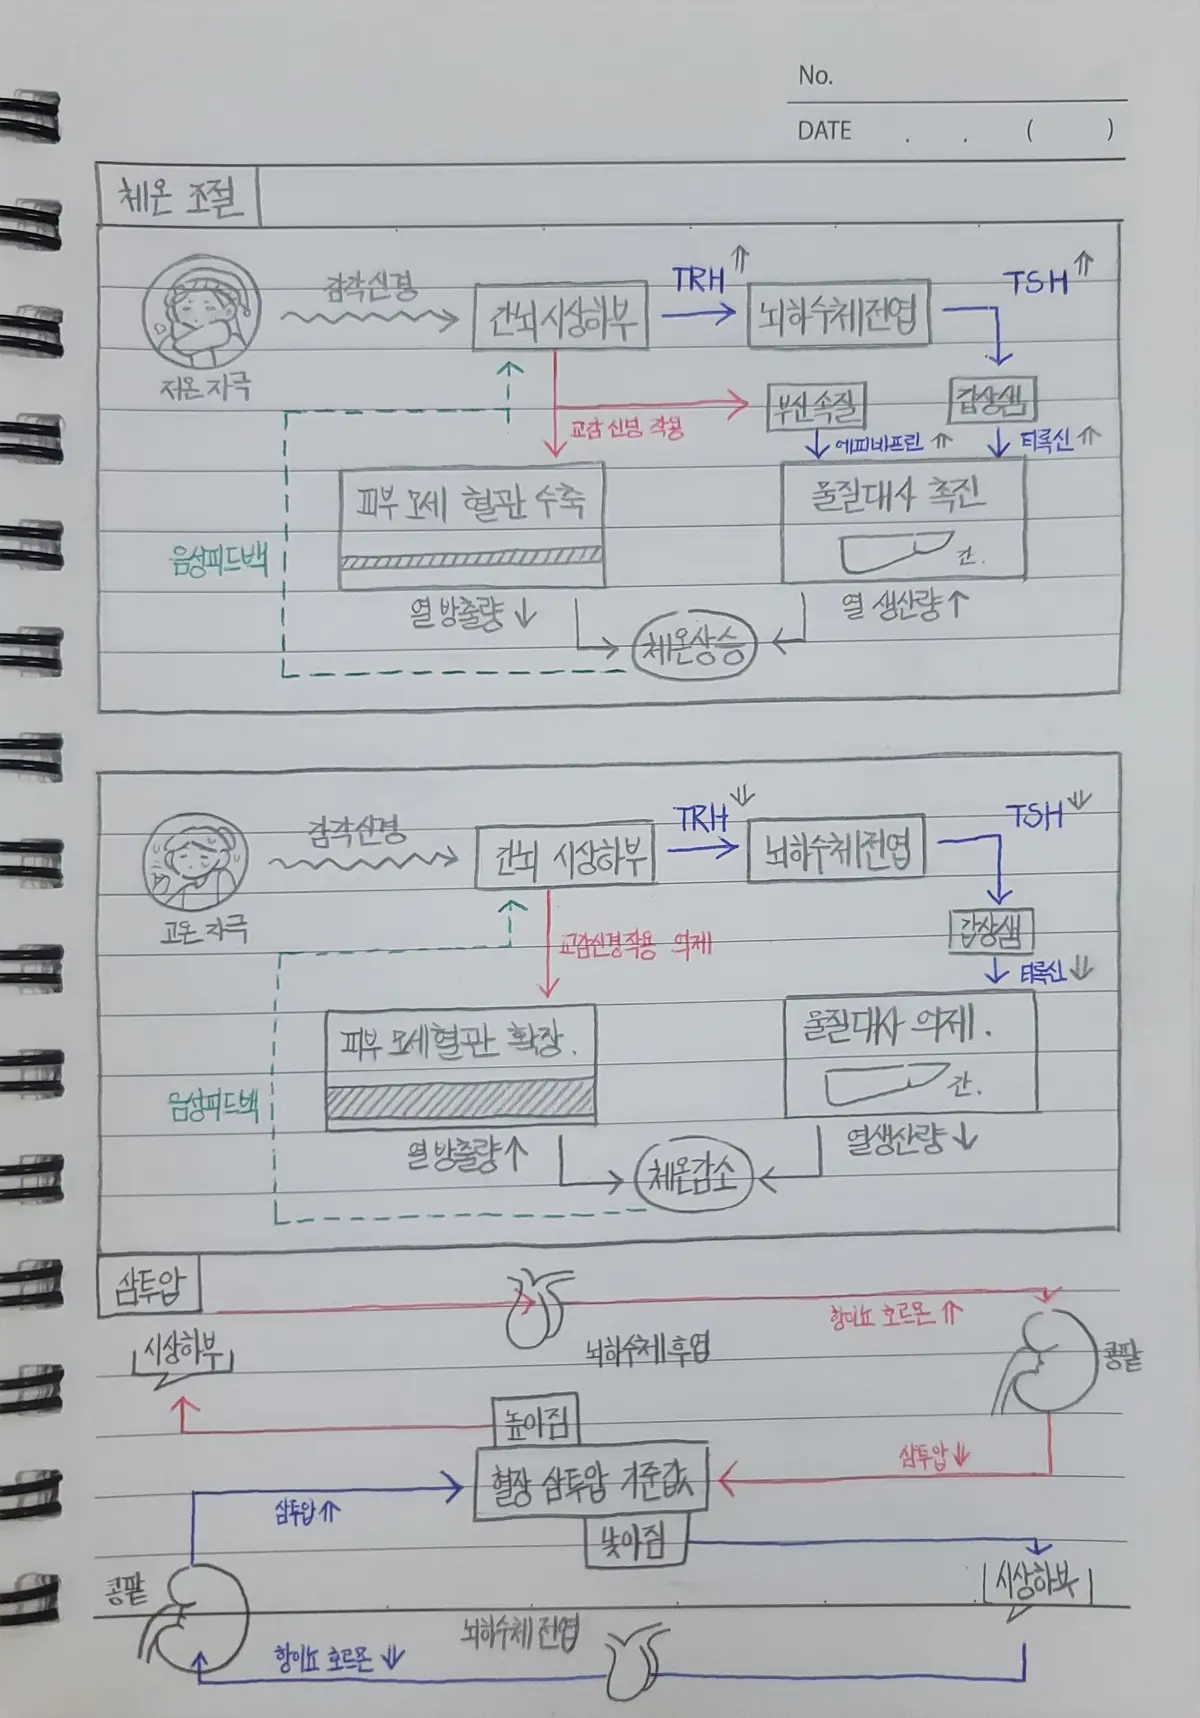 No.
DATE . . ( )
체온 조절
감각신경
TRH ⇑
TSH ⇑
간뇌 시상하부
뇌하수체 전엽
저온 자극
부신 속질
갑상샘
교감 신경 작용
에피네프린 ⇑
티록신 ⇑
피부 모세 혈관 수축
물질대사 촉진
음성피드백
간.
열 방출량 ↓
열 생산량 ↑
체온상승
감각신경
TRH ⇓
TSH ⇓
간뇌 시상하부
뇌하수체 전엽
고온 자극
교감신경작용 억제
갑상샘
티록신 ⇓
피부 모세혈관 확장.
물질대사 억제.
음성피드백
간.
열 방출량 ↑
열생산량 ↓
체온감소
삼투압
항이뇨 호르몬 ⇑
시상하부
뇌하수체 후엽
콩팥
높아짐
삼투압 ⇓
혈장 삼투압 기준값
삼투압 ⇑
낮아짐
콩팥
시상하부
뇌하수체 전엽
항이뇨 호르몬 ⇓